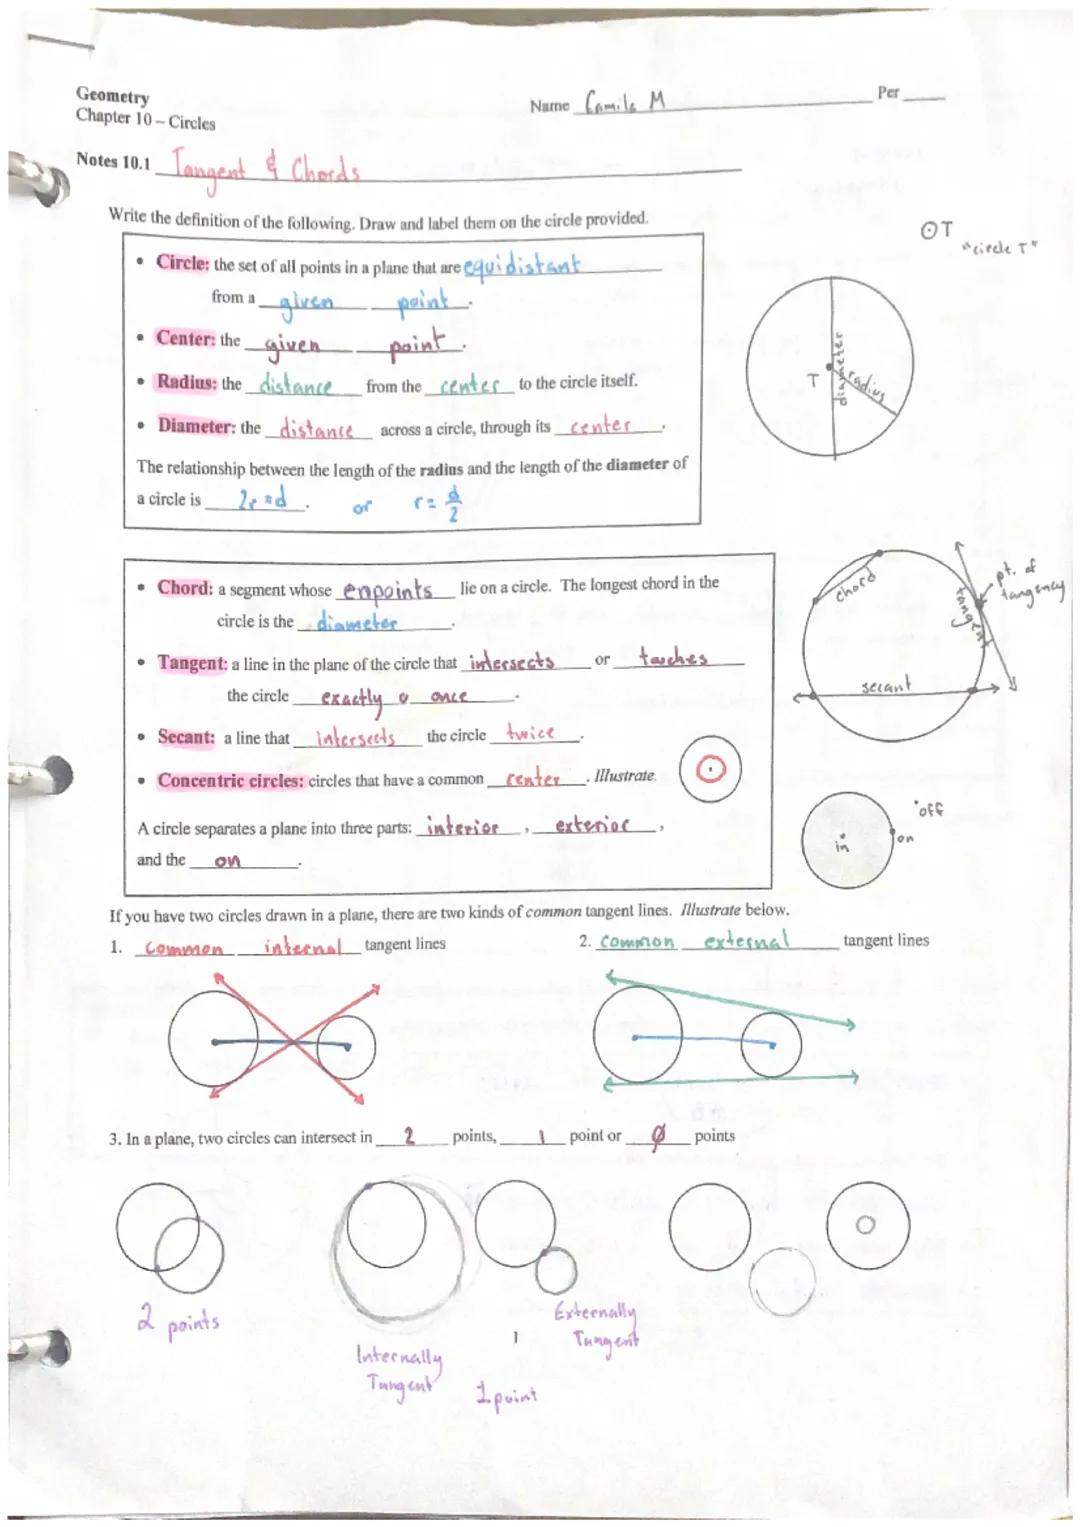 Geometry
Name Camila M Per
Chapter 10 – Circles
Notes 10.1 Tangent & Chords
Write the definition of the following. Draw and label them on the circle provided.
• Circle: the set of all points in a plane that are equidistant
from a given point.
• Center: the given point.
• Radius: the distance from the center to the circle itself.
• Diameter: the distance across a circle, through its center.
The relationship between the length of the radius and the length of the diameter of
a circle is 2r = d. or r = d/2
⊙T
"circle T"
T
diameter
radius
• Chord: a segment whose enpoints lie on a circle. The longest chord in the
circle is the diameter.
• Tangent: a line in the plane of the circle that intersects or touches
the circle exactly once.
• Secant: a line that intersects the circle twice.
• Concentric circles: circles that have a common center. Illustrate.
A circle separates a plane into three parts: interior, exterior,
and the on.
chord
tangent
pt. of
tangency
secant
in
on
off
If you have two circles drawn in a plane, there are two kinds of common tangent lines. Illustrate below.
1. common internal tangent lines
2. common external tangent lines
3. In a plane, two circles can intersect in 2 points, 1 point or Ø points
2 points
Internally
Tangent
1 point
Externally
Tangent
1